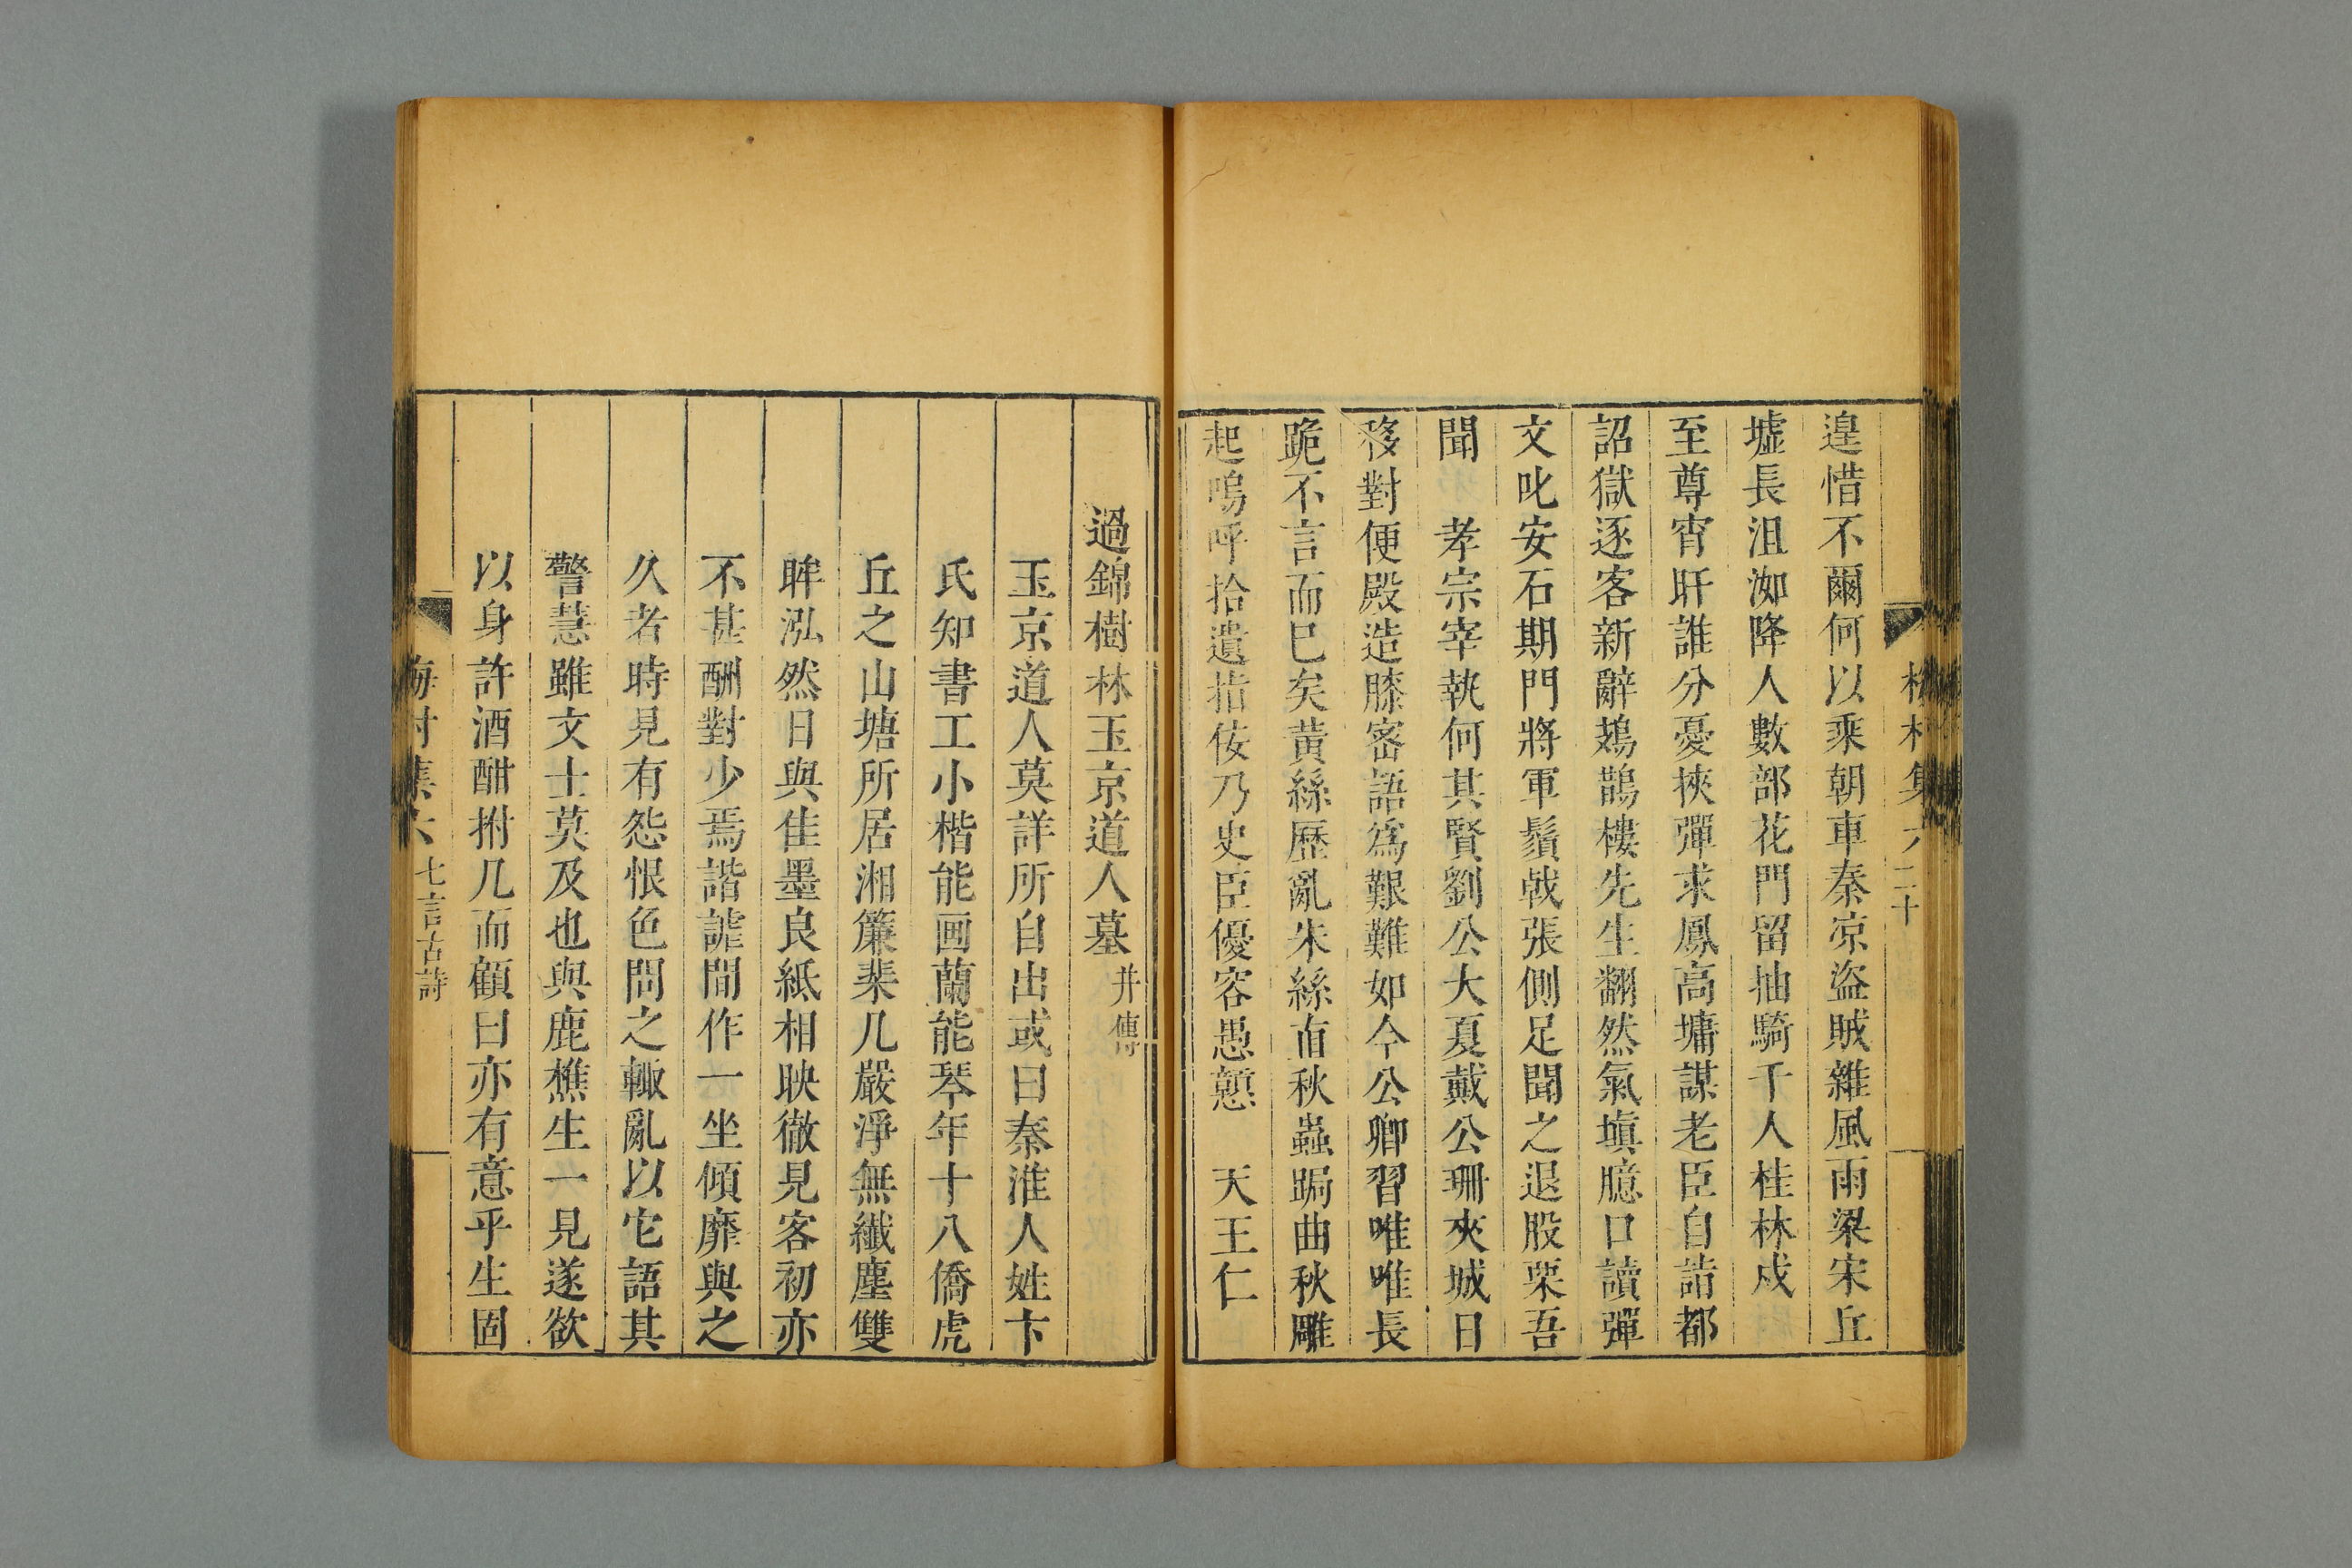 遑惜不爾何以乘朝車秦凉盜賊雜風雨梁宋丘
墟長沮洳降人數部花門留抽騎千人桂林戍
至尊宵旰誰分憂挾彈求鳳高墉謀老臣自詣都
詔獄逐客新辭鳷鵲樓先生翻然氣塡臆口讀彈
文叱安石期門將軍鬚戟張側足聞之退股栗吾
聞 孝宗宰執何其賢劉公大夏戴公珊夾城日
移對便殿造膝密語爲艱難如今公卿習唯唯長
跪不言而已矣黃絲歷亂朱絲直秋蟲跼曲秋雕
起嗚呼拾遺指佞乃史臣優容愚戇 天王仁
過錦樹林玉京道人墓 并傳
玉京道人莫詳所自出或曰秦淮人姓卞
氏知書工小楷能画蘭能琴年十八僑虎
丘之山塘所居湘簾棐几嚴淨無纖塵雙
眸泓然日與佳墨良紙相映徹見客初亦
不甚酬對少焉諧謔間作一坐傾靡與之
久者時見有怨恨色問之輒亂以它語其
警慧雖文士莫及也與鹿樵生一見遂欲
以身許酒酣拊几而顧曰亦有意乎生固
梅村集六 七言古詩